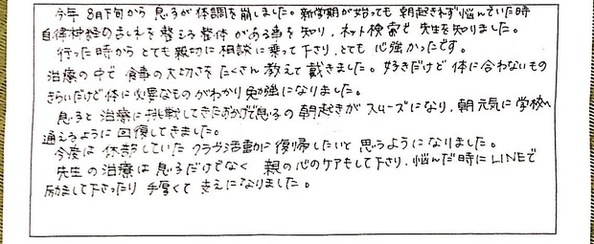 今年8月下旬から息子が体調を崩しました。新学期が始っても朝起きれず悩んでいた時
自律神経のみだれを整える整体がある事を知り、ネット検索で先生を知りました。
行った時からとても親切に相談に乗って下さり、とても心強かったです。
治療の中で食事の大切さをたくさん教えて戴きました。好きだけど体に合わないもの
きらいだけど体に必要なものがわかり勉強になりました。
息子と治療に挑戦してきたおかげで息子の朝起きがスムーズになり、朝元気に学校へ
通えるように回復してきました。
今度は休部していたクラブ活動に復帰したいと思うようになりました。
先生の治療は息子だけでなく親の心のケアもして下さり、悩んだ時にLINEで
励まして下さったり手厚くて支えになりました。